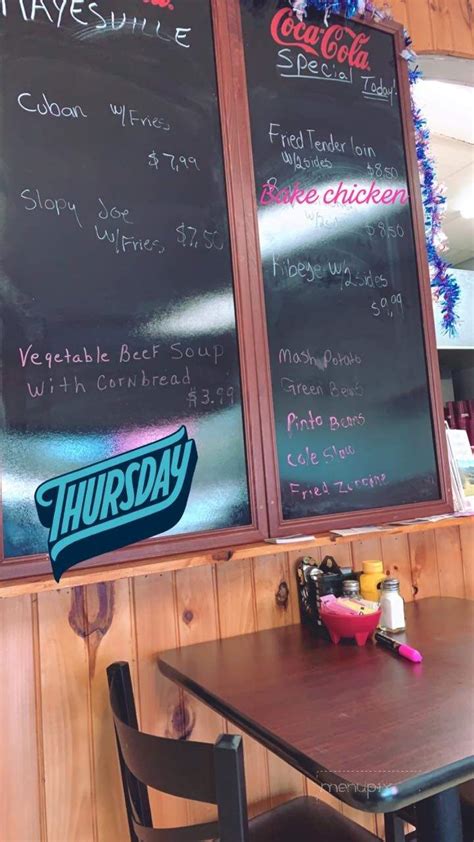 HAYESVILLE
Cuban W/Fries
$7.99
Slopy Joe
W/Fries $7.50
Vegetable Beef Soup
With Cornbread
$3.99
THURSDAY
Coca-Cola
Special Today!
Fried Tender loin
W/2 sides $8.50
Bake chicken
W/2 sides
$8.50
Ribeye W/2 sides
$9.99
Mash Potato
Green Beans
Pinto Beans
Cole Slaw
Fried
menupix